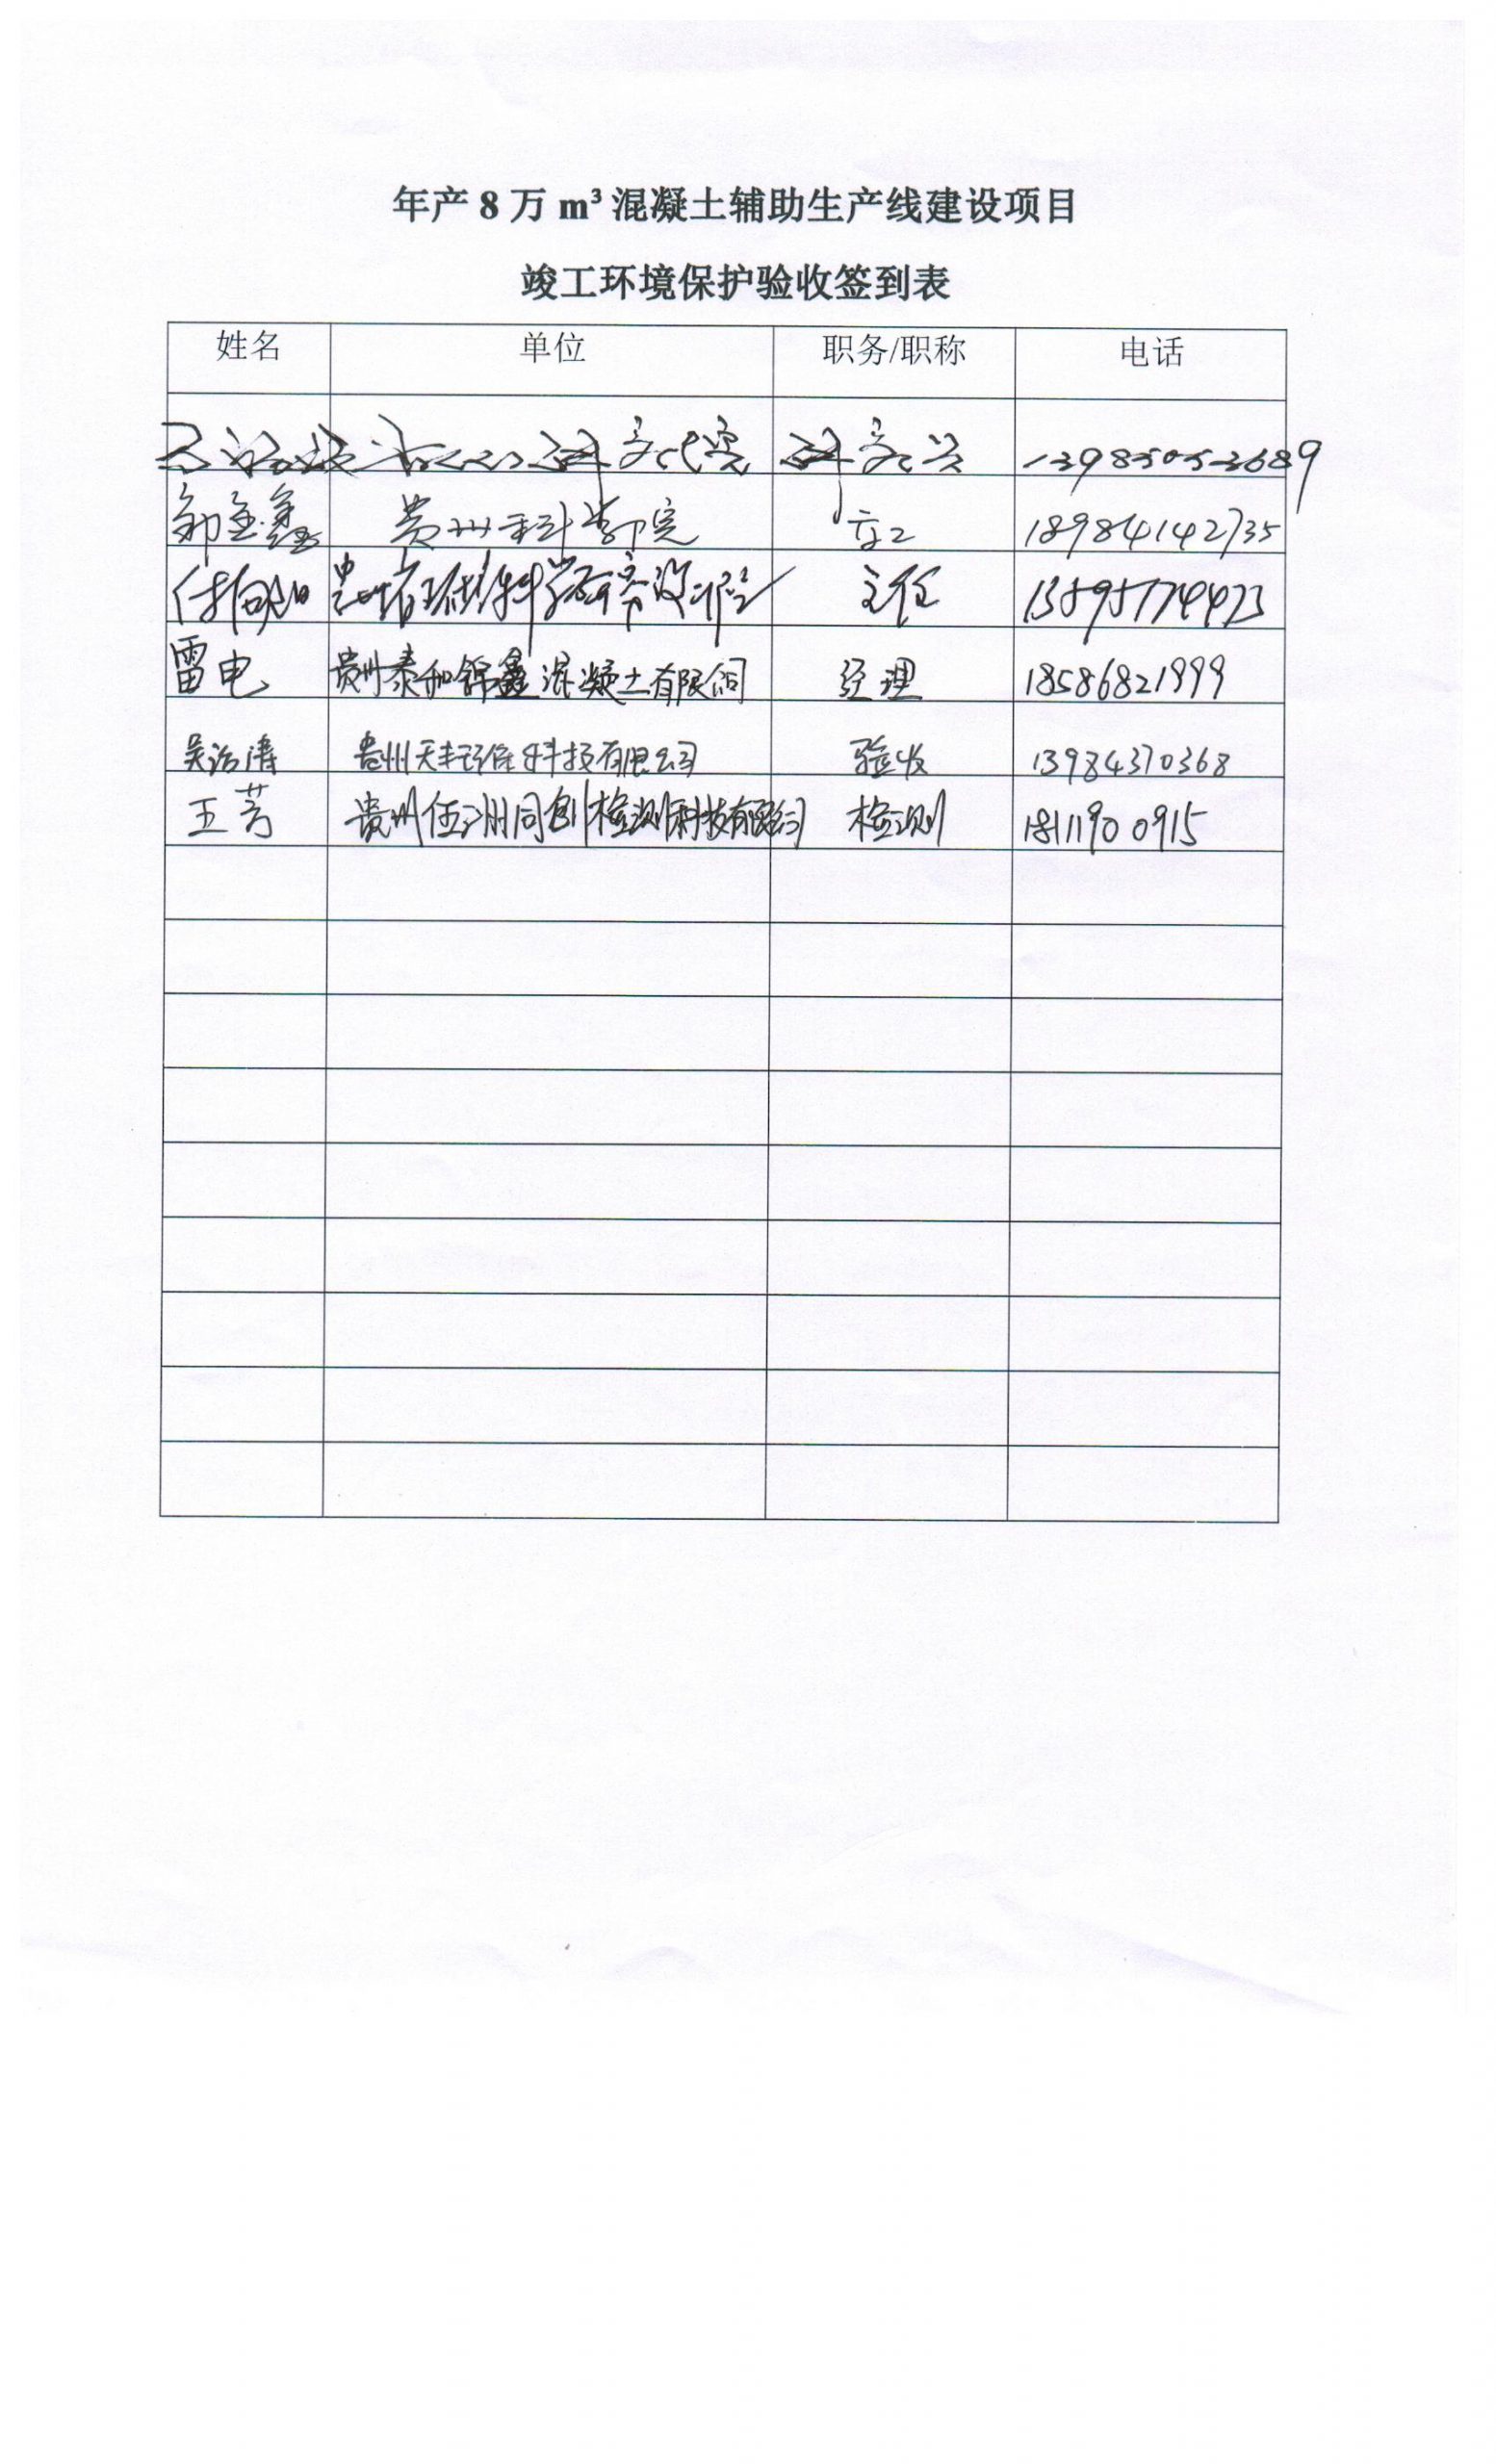 年产8万m³混凝土辅助生产线建设项目
竣工环境保护验收签到表
姓名 单位 职务/职称 电话
13985053689
贵州科学院 高工 18984142735
主任 13595774423
雷电 贵州泰和锦鑫混凝土有限公司 经理 18586821999
吴治涛 贵州天丰环保科技有限公司 验收 13984370368
王芳 贵州伍洲同创检测科技有限公司 检测 18111900915